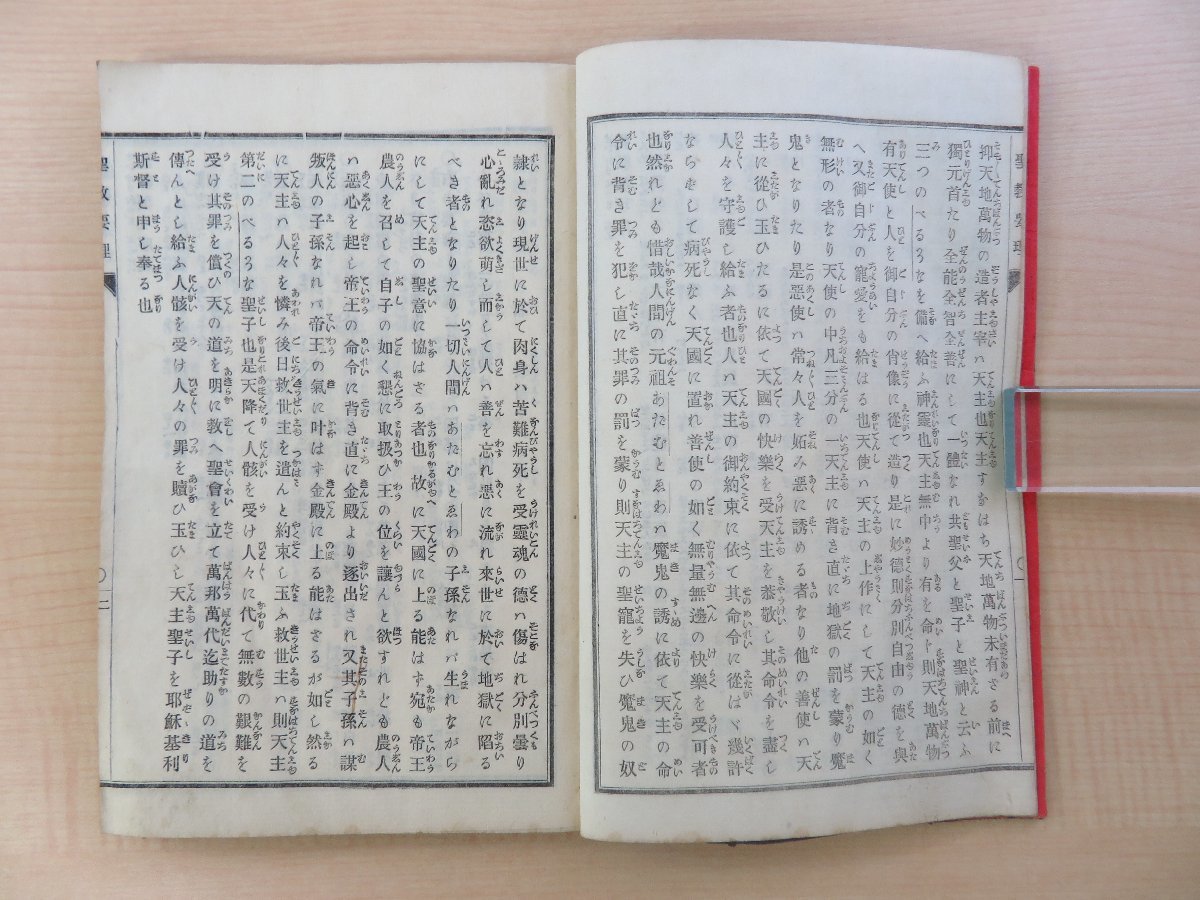 聖教要理
抑天地萬物の造者主宰ハ天主也天主すなはち天地萬物未有さる前に
獨元首たり全能全智全善にして一體なれ共聖父と聖子と聖神と云ふ
三つのべるそなを備へ給ふ神靈也天主無中より有を命ト則天地萬物
有天使と人を御自分の肖像に從て造り是に妙德則分別自由の德を與
へ又御自分の寵愛をも給はる也天使ハ天主の上作にして天主の如く
無形の者なり天使の中凡三分の一天主に背き直ちに地獄の罰を蒙り魔
鬼となりたり是惡使ハ常々人を妬み惡に誘める者なり他の善使ハ天
主に從ひ玉ひたるに依て天國の快樂を受天主を恭敬し其命令を盡し
人々を守護し給ふ者也人ハ天主の御約束に依て其命令に從はヾ幾許
ならずして病死なく天國に置れ善使の如く無量無邊の快樂を受可者
也然れども惜哉人間の元祖あたむとゑわハ魔鬼の誘に依て天主の命
令に背き罪を犯し直に其罪の罰を蒙り則天主の聖寵を失ひ魔鬼の奴
隷となり現世に於て肉身ハ苦難病死を受靈魂の德ハ傷はれ分別曇り
心亂れ恣欲萌し而して人ハ善を忘れ惡に流れ來世に於て地獄に陷る
べき者となりたり一切人間ハあたむとゑわの子孫なれバ生れながら
にして天主の聖意に協はざる者也故に天國に上る能はず宛も帝王
農人を召して自子の如く懇に取扱ひ王の位を讓んと欲すれども農人
ハ惡心を起し帝王の命令に背き直に金殿より逐出され又其子孫ハ謀
叛人の子孫なれバ帝王の氣に叶はず金殿に上る能はざるが如し然る
に天主ハ人々を憐み後日救世主を遣んと約束し玉ふ救世主ハ則天主
第二のべるそな聖子也是天降て人骸を受け人々に代て無數の艱難を
受け其罪を償ひ天の道を明に教へ聖會を立て萬邦萬代迄助りの道を
傳んとし給ふ人骸を受け人々の罪を贖ひ玉ひし天主聖子を耶穌基利
斯督と申し奉る也
聖教要理